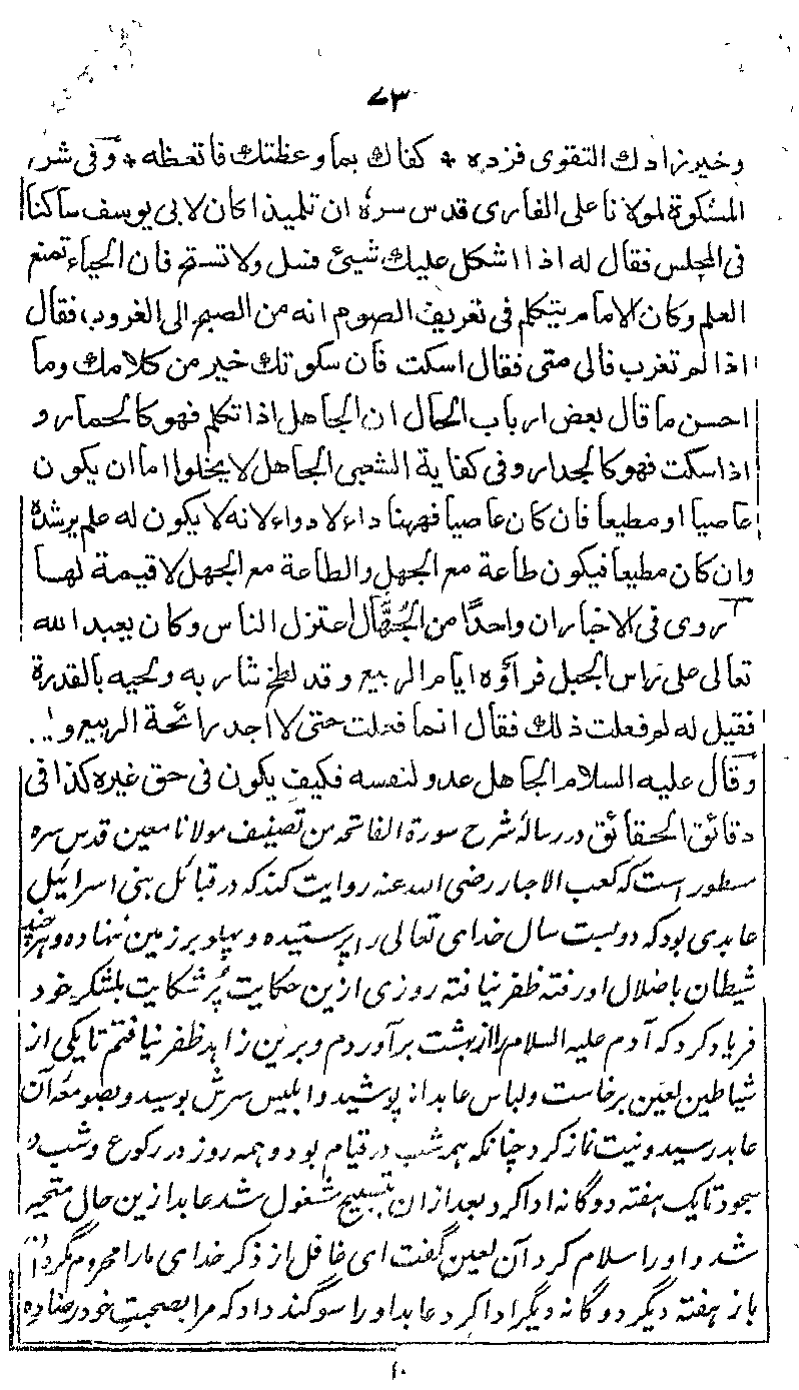 ٧٣
وخير زادك التقوى فزده + كفاك بما وعظتك فاتعظه + وفى شر
المشكوة لمولانا على القارى قدس سره ان تلميذا كان لابى يوسف ساكنا
فى المجلس فقال له اذا اشكل عليك شيئ فسل ولا تستح فان الحياء تمنع
العلم وكان الامام يتكلم فى تعريف الصوم انه من الصبح الى الغروب فقال
اذا لم تغرب فالى متى فقال اسكت فان سكوتك خير من كلامك وما
احسن ما قال بعض ارباب الحال ان الجاهل اذا تكلم فهو كالحمار و
اذا سكت فهو كالجدار وفى كفاية الشعبى الجاهل لا يخلوا اما ان يكون
عاصيا او مطيعا فان كان عاصيا فههنا داء لا دواء لانه لا يكون له علم يرشده
وان كان مطيعا فيكون طاعة مع الجهل والطاعة مع الجهل لا قيمة لها
روى فى الاخبار ان واحدًا من الجُهّال اعتزل الناس وكان يعبد الله
تعالى على راس الجبل فرآؤه ايام الربيع وقد لطخ شاربه ولحيه بالقدرة
فقيل له لم فعلت ذلك فقال انما فعلت حتى لا اجد رائحة الربيع و
وقال عليه السلام الجاهل عدو لنفسه فكيف يكون فى حق غيره كذا فى
دقائق الحقائق در رسالۀ شرح سورة الفاتحه من تصنيف مولانا معين قدس سره
مسطور است كه كعب الاحبار رضى الله عنه روايت كند كه در قبائل بنى اسرائيل
عابدى بود كه دويست سال خداى تعالى را پرستيده و پهلو بر زمين ننهاده و هر چند
شيطان باضلال او رفته ظفر نيافته روزى ازين حكايت پُر شكايت بلشكر خود
فرياد كرد كه آدم عليه السلام را از بهشت برآوردم و برين زاهد ظفر نيافتم تا يكى از
شياطين لعين برخاست و لباس عابدانه پوشيد و ابليس سرش بوسيد و بصومعۀ آن
عابد رسيد و نيت نماز كرد چنانكه همه شب در قيام بود و همه روز در ركوع و شب در
سجود تا يك هفته دوگانه ادا كرد بعد ازان بتسبيح مشغول شد عابد ازين حال متحير
شد و او را سلام كرد آن لعين گفت اى غافل از ذكر خداى ما را محروم مگردان
باز هفته ديگر دوگانه ديگر ادا كرد عابد او را سوگند داد كه مرا بصحبت خود رضا ده